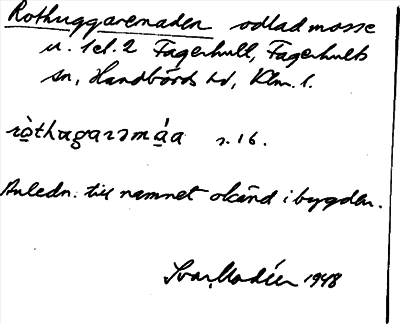 Rothuggarenaden odlad mosse
u. 1 el. 2 Fagerhult, Fagerhults
sn, Handbörds hd, Klm. l.
ròthɯgarəmáa s. 16.
Anledn. till namnet okänd i bygden.
Ivar Modéer 1948